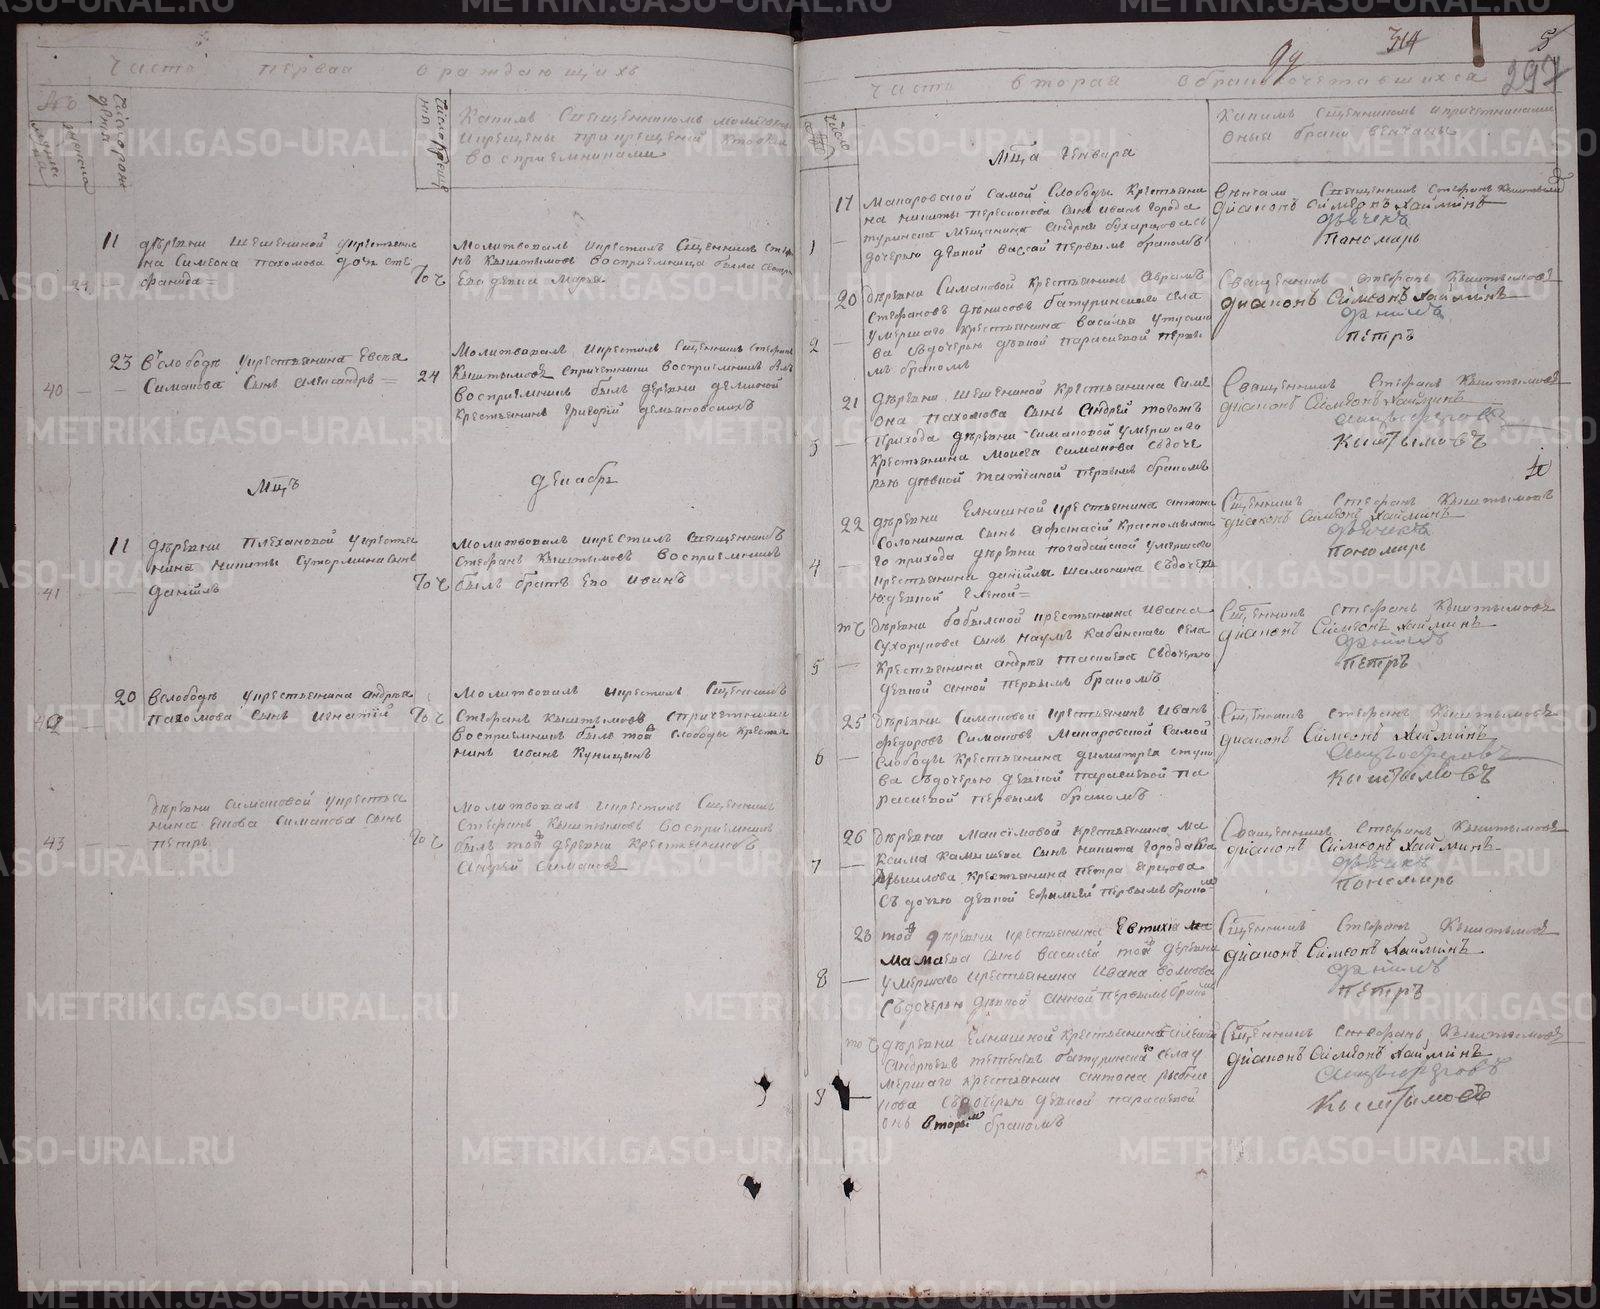 Часть первая о раждающихъ
Числорож
дени
Число креще
нія
Какимъ Священникомъ молитвов
и крещены при крещеніи кто были
воспріемниками
11 деревни Шешениной у крестьяни
на Симеона Пахомова дочь Сте
фанида
Молитвовалъ и крестилъ Священникъ Стефа
нъ Кыштымовъ воспріемница была сестра
То ч Его девка Марья
23 в слободе у крестьянина Евсея
40 — Симанова сынъ Александръ 24
Молитвовалъ и крестилъ Священникъ Стефанъ
Кыштымовъ спричетники воспріемникъ былъ
воспріемникъ былъ деревни Деминой
крестьянинъ Григорій Демьяновскихъ
Мцъ Декабрь
11 деревни Плехановой у крестья
нина Никиты Суторминасынъ
41 — Даніилъ То ч
Молитвовалъ и крестилъ Священникъ
Стефанъ Кыштымовъ воспріемникъ
былъ братъ Его Иванъ
20 в слободе у крестьянина Андрея
42 — Пахомова сынъ Игнатій То ч
Молитвовалъ и крестилъ Священникъ
Стефанъ Кыштымовъ спричетники
воспріемникъ былъ той слободы крестья
нинъ Иванъ Куницынъ
деревни Симановой у крестья
нина Симанова сынъ
43 — — Петръ То ч
Молитвовалъ и крестилъ Священникъ
Стефанъ Кыштымовъ воспріемникъ
былъ той деревни крестьянинъ
Андрей Симановъ
314 5
99 297
Часть вторая о бракосочетавшихся
Число
Мца Генваря
Какимъ Священникомъ и причетниками
оныя браки венчаны
17 Макаровской самой слободы крестьяни
на Никиты Пересионова сынъ Иванъ города
1 — Туринска мещанина Андрея Бухарцова съ
дочерью девкой Вассой первымъ бракомъ
Венчали Священникъ Стефанъ Кыштымовъ
диаконъ Симеонъ Хайминъ
дьячекъ
Панамарь
20 деревни Симановой крестьянинъ Аврамъ
Стефановъ Денисовъ Батуринскаго села
умершаго крестьянина Василья Утусико
2 — ва съдочерью девкой Параскевой первы
мъ бракомъ
Священникъ Стефанъ Кыштымовъ
диаконъ Симеонъ Хайминъ
Фниилъ
Петръ
21 деревни Шешениной крестьянина Симе
она Пахомова сынъ Андрей тогожъ
3 — прихода деревни Симановой умершаго
крестьянина Моисея Симанова съдоче
рью девкой Татіяной первымъ бракомъ
Священникъ Стефанъ Кыштымовъ
диаконъ Симеонъ Хайминъ
Кыштымовъ
22 деревни Елкишной крестьянина Антона
Солонинина сынъ Афонасій Красномылска
4 — го прихода деревни Погадайской умершаго
крестьянина Даніила Шамонина съдочер
ю девкой Еленой
Священникъ Стефанъ Кыштымовъ
диаконъ Симеонъ Хайминъ
дьячекъ
Панамарь
т ч деревни Бобылской крестьянина Ивана
Сухорукова сынъ Наумъ Кабанскаго села
5 — крестьянина Андрея Таскаева съдочерью
девкой Анной первымъ бракомъ
Священникъ Стефанъ Кыштымовъ
диаконъ Симеонъ Хайминъ
Фниилъ
Петръ
25 деревни Симановой крестьянинъ Иванъ
Федоровъ Симановъ Макаровской самой
6 — слободы крестьянина Димитрея Ступи
ва съдочерью девкой Параскевой па
раскевой первымъ бракомъ
Священникъ Стефанъ Кыштымовъ
диаконъ Симеонъ Хайминъ
Кыштымовъ
26 деревни Максимовой крестьянина Ма
ксима Камышева сынъ Никита города Ша
7 — крестьянина Петра Ерцова
съ дочью девкой Ефимьей первымъ бракомъ
Священникъ Стефанъ Кыштымовъ
диаконъ Симеонъ Хайминъ
дьячекъ
Панамарь
28 той деревни крестьянина Евтихія Ма
мамаева сынъ Василей той деревни
8 — умершаго крестьянина Ивана Волкова
съдочерью девкой Анной первымъ бракомъ
Священникъ Стефанъ Кыштымовъ
диаконъ Симеонъ Хайминъ
Фниилъ
Петръ
то ч деревни Елкишной крестьянинъ Алексей
Андреевъ Тетеневъ Батуринскаго села у
мершаго крестьянин Антона Рыбни
— кова съдочерью девкой Параскевой
онъ вторымъ бракомъ
Священникъ Стефанъ Кыштымовъ
диаконъ Симеонъ Хайминъ
Кыштымовъ
METRIKI.GASO-URAL.RU